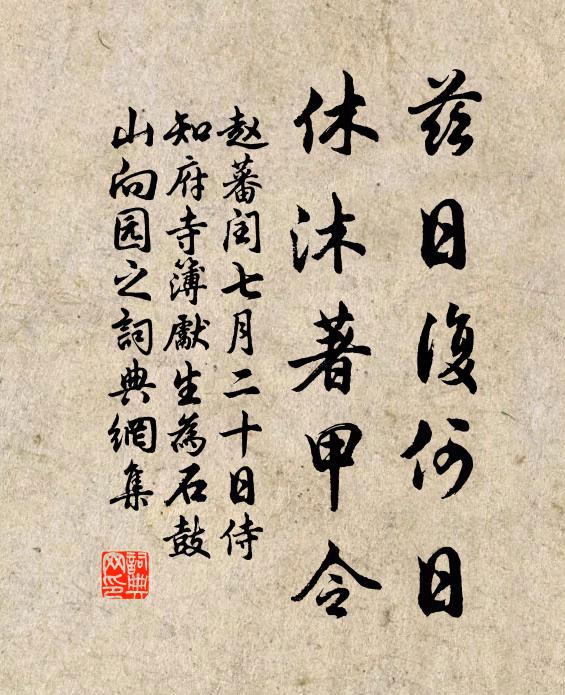 茲日復何日
休沐著甲令
赵蕃闰七月二十日侍
知府寺簿獻生為石鼓
山向园之詞典網集
詞典
网印